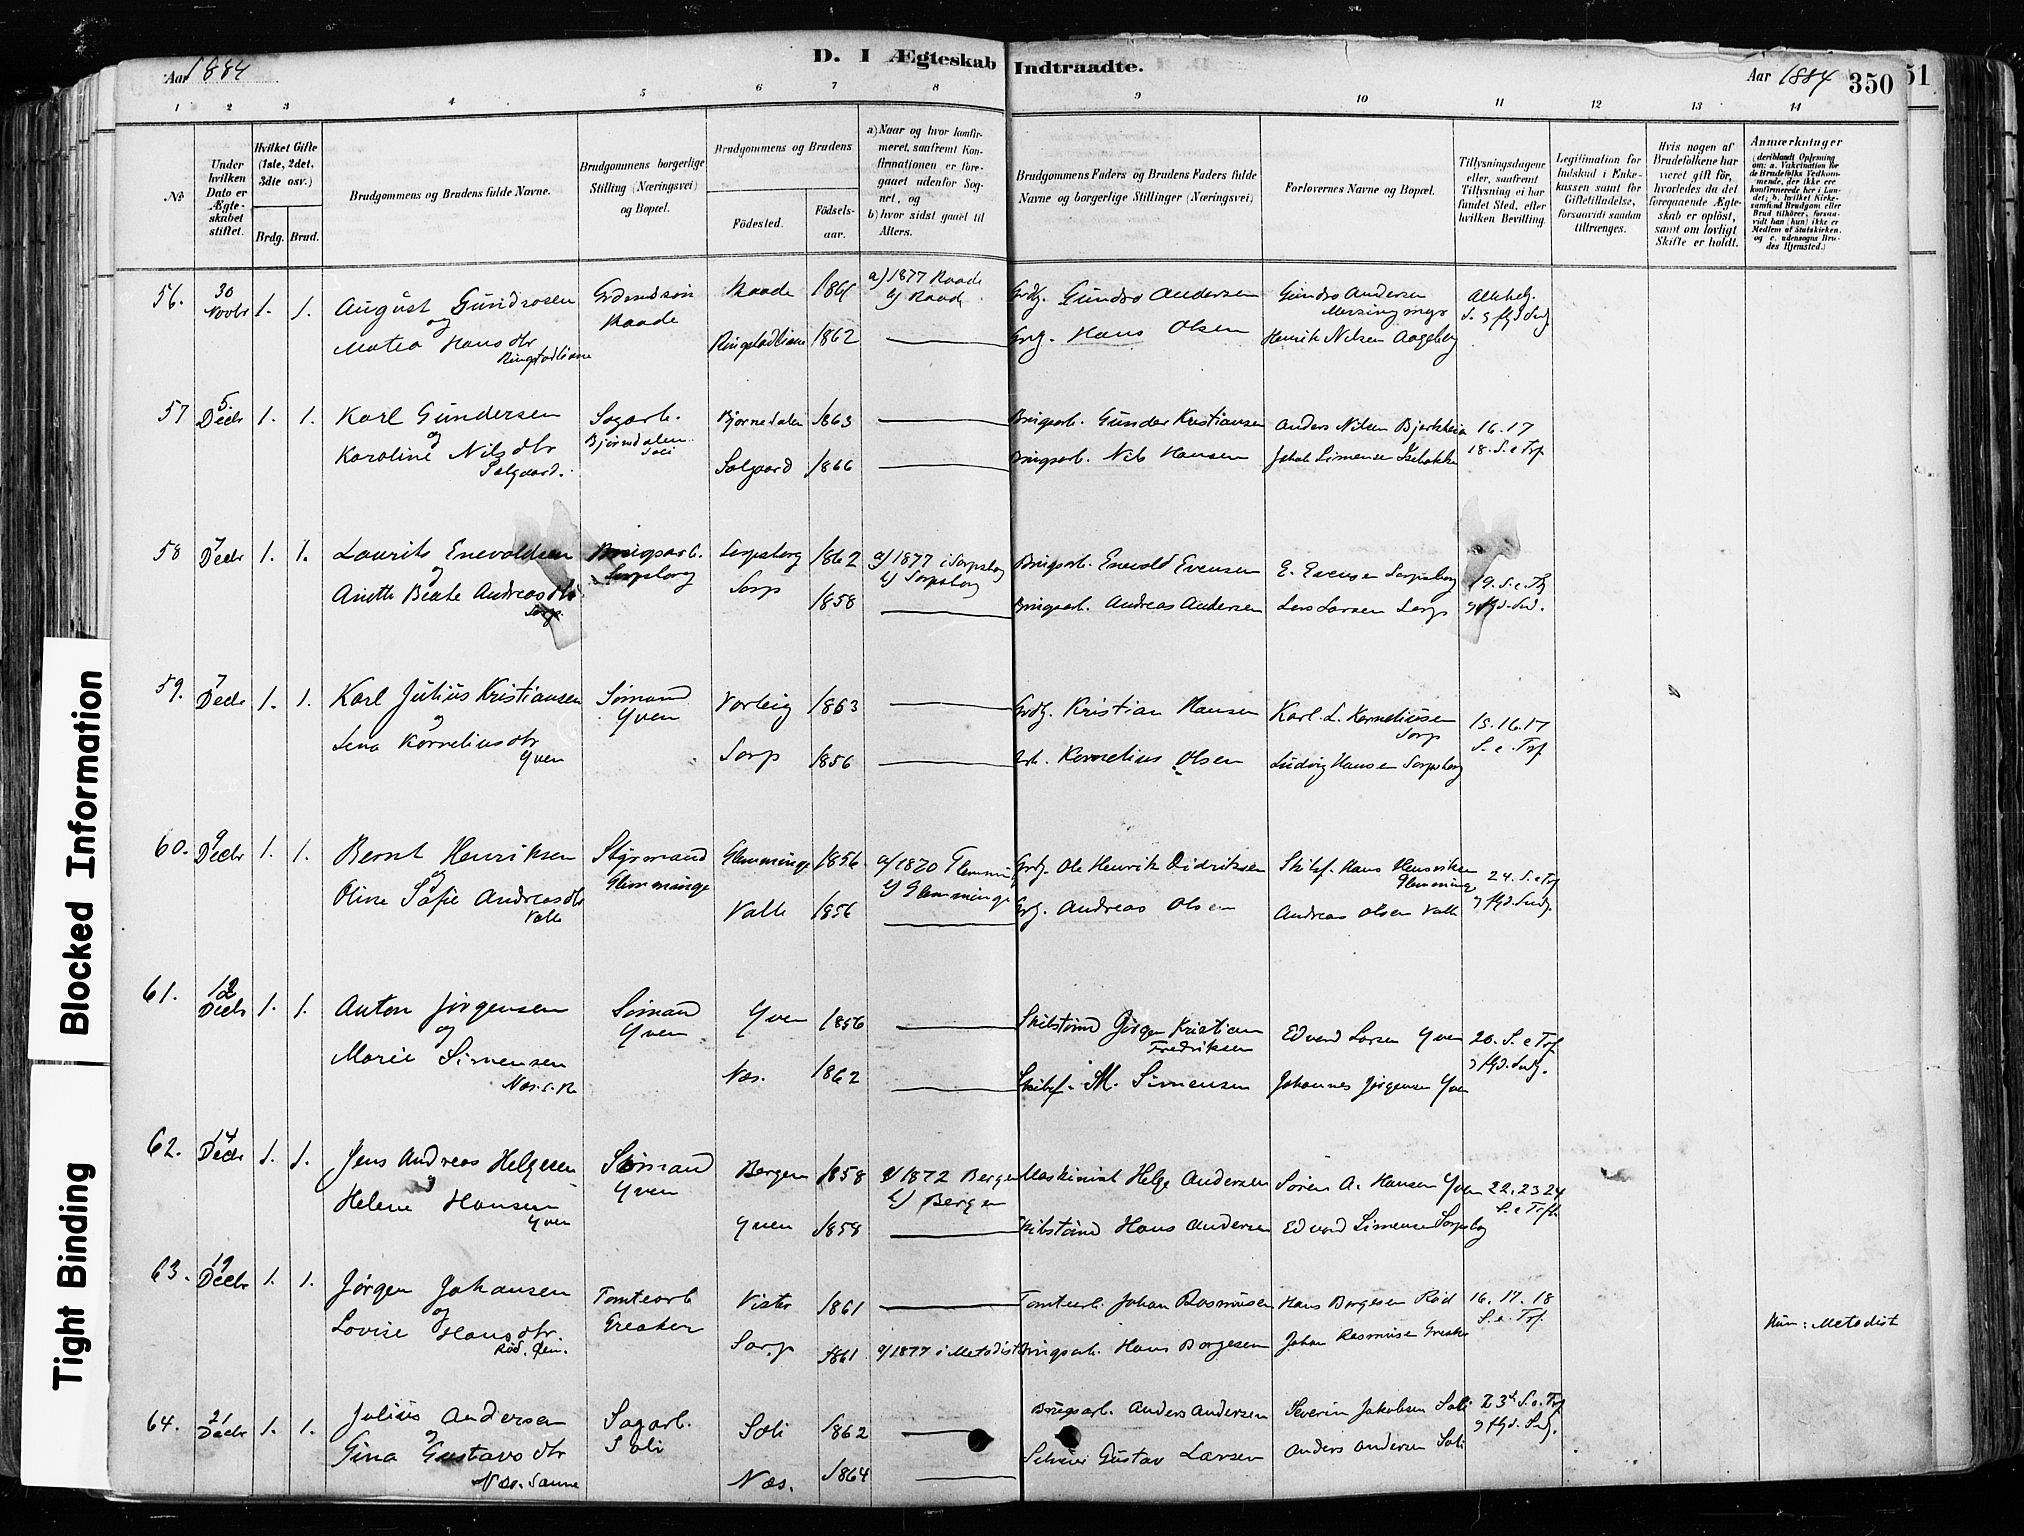 Aar 1884
D. I Ægteskab Indtraadte.
Aar 1884 350
51
1 2 3 4 5 6 7 8 9 10 11 12 13 14
№
Under hvilken Dato er Ægteskabet stiftet.
Hvilket Gifte (1ste, 2det, 3die osv.)
Brdg. Brud.
Brudgommens og Brudens fulde Navne.
Brudgommens borgerlige Stilling (Næringsvei) og Bopæl.
Brudgommens og Brudens
Fødested.
Fødselsaar.
a) Naar og hvor konfirmeret, saafremt Konfirmationen er foregaaet udenfor Sognet, og
b) hvor sidst gaaet til Alters.
Brudgommens Faders og Brudens Faders fulde Navne og borgerlige Stillinger (Næringsvei)
Forlovernes Navne og Bopæl.
Tillysningsdagene eller, saafremt Tillysning ei har fundet Sted, efter hvilken Bevilling.
Legitimation for Indskud i Enkekassen samt for Giftetilladelse, forsaavidt saadan tiltrænges.
Hvis nogen af Brudefolkene har været gift før, hvorledes da det foregaaende Ægteskab er opløst, samt om lovligt Skifte er holdt.
Anmærkninger
56. 30 Novbr 1. 1. August Gundrosen Raade 1861 a) 1877 Raade b) Raade Grdg. Gundro Andersen Gundro Andersen
og
Matea Hansdtr Ringstadliane Ringstadliane 1862 Grdg. Hans Olsen Henrik Nilsen Aageberg
57 5. Decbr 1. 1. Karl Gundersen Sagarb. Bjørndalen Soli Bjørnedalen 1863 Brugsarb. Gunder Kristiansen Anders Nilsen 16. 17
og
Karoline Nilsdtr Solgaard. Solgaard 1866 Brugsarb. Nils Hansen Jakob Simensen 18. S. e Trf
58 7 Decbr 1. 1. Laurits Enevoldsen Brugsarb. Sarpsborg Sarpsborg 1862 a) 1877 i Sarpsborg b) Sarpsborg Brugsarb. Enevold Evensen E. Evensen Sarpsborg 19. S. e Trf
og
Anette Beate Andreasdtr Sarp. Sarp 1858 Brugsarb. Andreas Andersen Lars Larsen Sarp
59. 7 Decbr 1. 1. Karl Julius Kristiansen Sømand Yven Varteig 1863 Grdg. Kristian Hansen Karl L. Korneliusen Sarp 15. 16. 17
og
Lena Korneliusdtr Yven Sarp 1856 Arb. Kornelius Olsen Ludvig Hansen Sarpsborg S. e. Trf.
60. 9 Decbr 1. 1. Bernt Henriksen Styrmand Glemminge Glemminge 1856 a) 1870 Glemminge b) Glemminge Grdg. Ole Henrik Didriksen Skibsf. Hans Henriksen Glemminge 24. S. e Trf
og
Oline Sofie Andreasdtr Valle Valle 1856 Grdg. Andreas Olsen Andreas Olsen Valle
61. 12 Decbr 1. 1. Anton Jørgensen Sømand Yven Yven 1856 Skibstømd Jørgen Kristian Fredriksen Edvard Larsen Yven 20. S. e Trf
og
Marie Simensen Næs. 1862 Skibsf. M. Simensen Johannes Jørgensen Yven
62. 14 Decbr 1. 1. Jens Andreas Helgesen Sømand Yven Bergen 1858 a) 1872 Bergen b) Bergen Maskinist Helge Andersen Søren A. Hansen Yven 22. 23 24
og
Helene Hansen Yven Yven 1858 Skibstømd Hans Andersen Edvard Simensen Sarpsborg S. e Trf.
63. 19 Decbr 1. 1. Jørgen Johansen Tomtearb Greaker Vister 1861 Tomtearb. Johan Rasmusen Hans Borgesen Rød 16. 17. 18
og
Lovise Hansdtr. Rød. Sarp 1861 a) 1877 i Metodist Brugsarb. Hans Borgesen Johan Rasmusen Greaker S. e. Trf. Hun: Metodist
64. 21 Decbr 1. 1. Julius Andersen Sagarb. Soli Soli 1862 Brugsarb. Anders Andersen Severin Jakobsen Soli 23 S. e. Trf
og
Gina Gustavsdtr Næs. Sanne Næs. 1864 Gustav Larsen Anders Andersen Soli
Blocked Information
Tight Binding